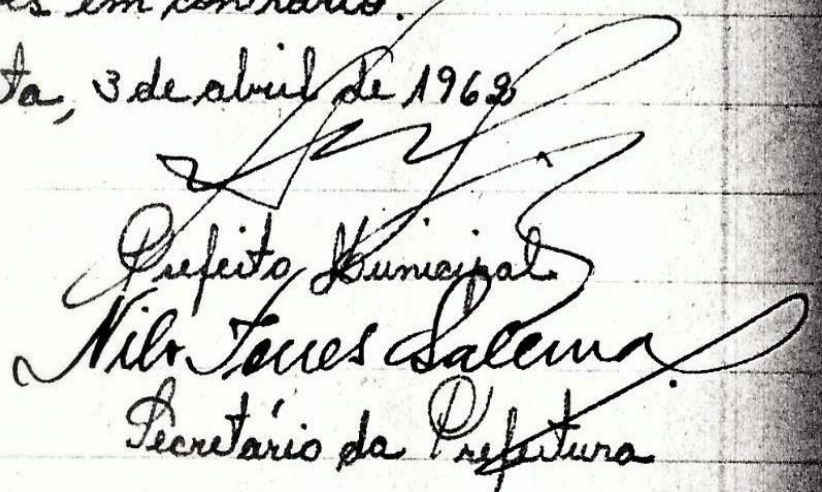 em contrário.
ta, 3 de abril de 1962
Prefeito Municipal
Nilo Torres Salema
Secretário da Prefeitura